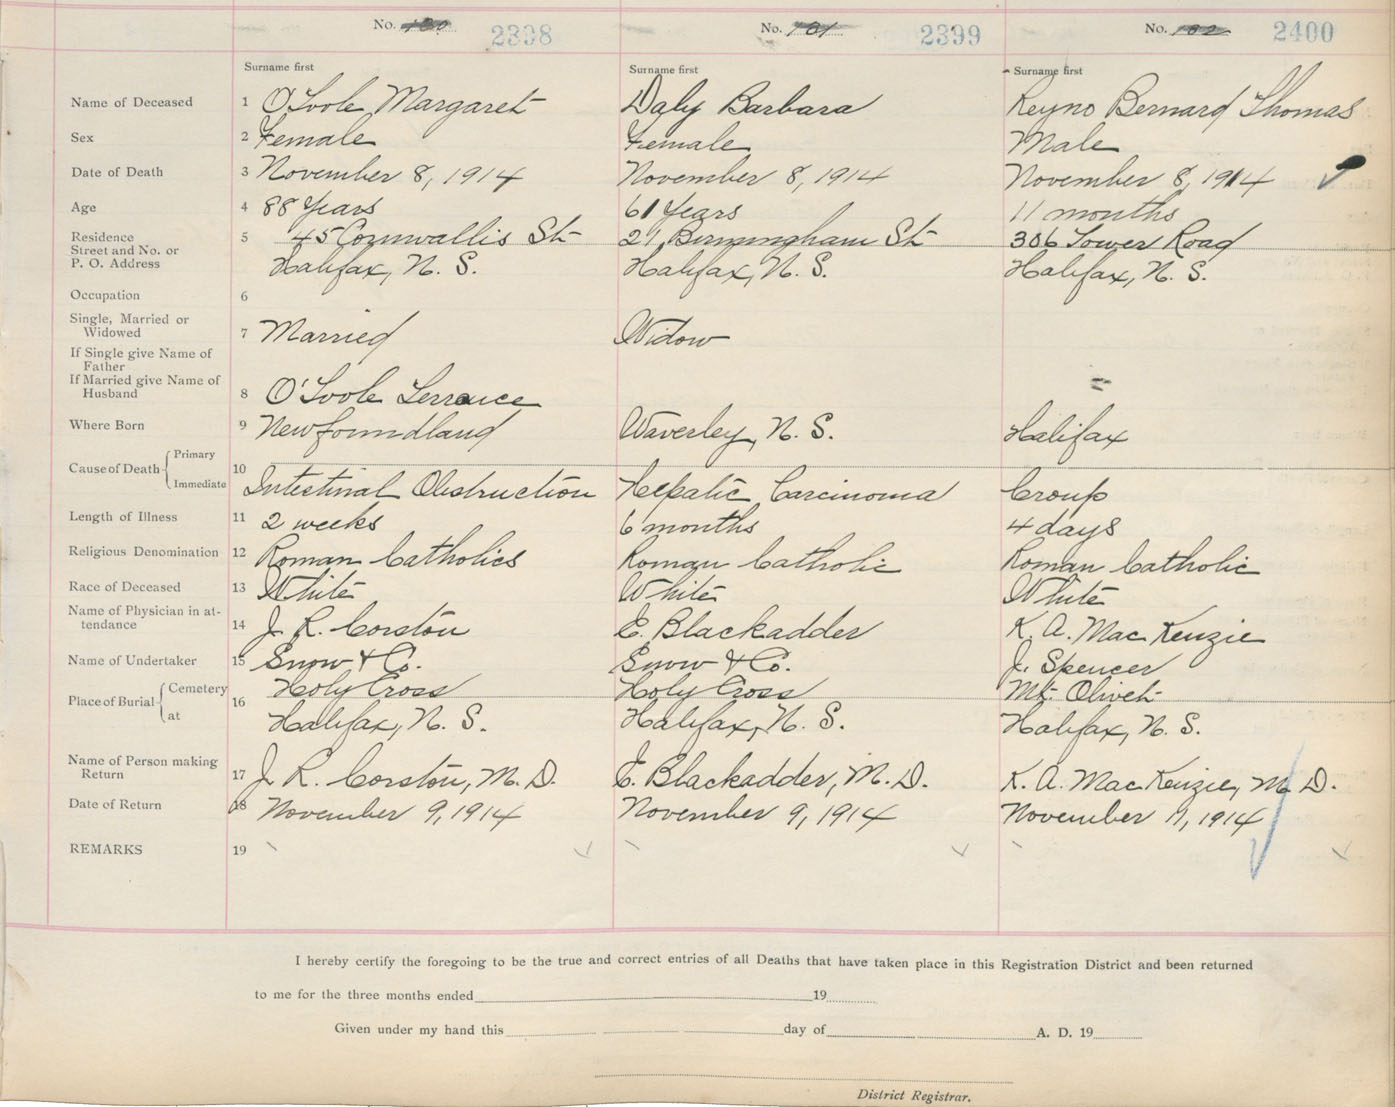 No. 180 2398 No. 181 2399 No. 182 2400
Surname first Surname first Surname first
Name of Deceased 1 O'Toole Margaret Daly Barbara Reyno Bernard Thomas
Sex 2 Female Female Male
Date of Death 3 November 8, 1914 November 8, 1914 November 8, 1914
Age 4 88 Years 61 Years 11 months
Residence
Street and No. or 5 45 Cornwallis St 21 Birmingham St 306 Tower Road
P. O. Address Halifax, N. S. Halifax, N. S. Halifax, N. S.
Occupation 6
Single, Married or
Widowed 7 Married Widow
If Single give Name of
Father
If Married give Name of
Husband 8 O'Toole Terrance
Where Born 9 Newfoundland Waverley, N. S. Halifax
Cause of Death Primary
10
Immediate Intestinal Obstruction Hepatic Carcinoma Croup
Length of Illness 11 2 weeks 6 months 4 days
Religious Denomination 12 Roman Catholics Roman Catholic Roman Catholic
Race of Deceased 13 White White White
Name of Physician in at-
tendance 14 J. R. Corston E. Blackadder K. A. Mac Kenzie
Name of Undertaker 15 Snow & Co. Snow & Co. J. Spencer
Place of Burial Cemetery 16 Holy Cross Holy Cross Mt. Olivet
at Halifax, N. S. Halifax, N. S. Halifax, N. S.
Name of Person making
Return 17 J. R. Corston, M. D. E. Blackadder, M. D. K. A. Mac Kenzie, M. D.
Date of Return 18 November 9, 1914 November 9, 1914 November 9, 1914
REMARKS 19
I hereby certify the foregoing to be the true and correct entries of all Deaths that have taken place in this Registration District and been returned
to me for the three months ended 19
Given under my hand this day of A. D. 19
District Registrar.